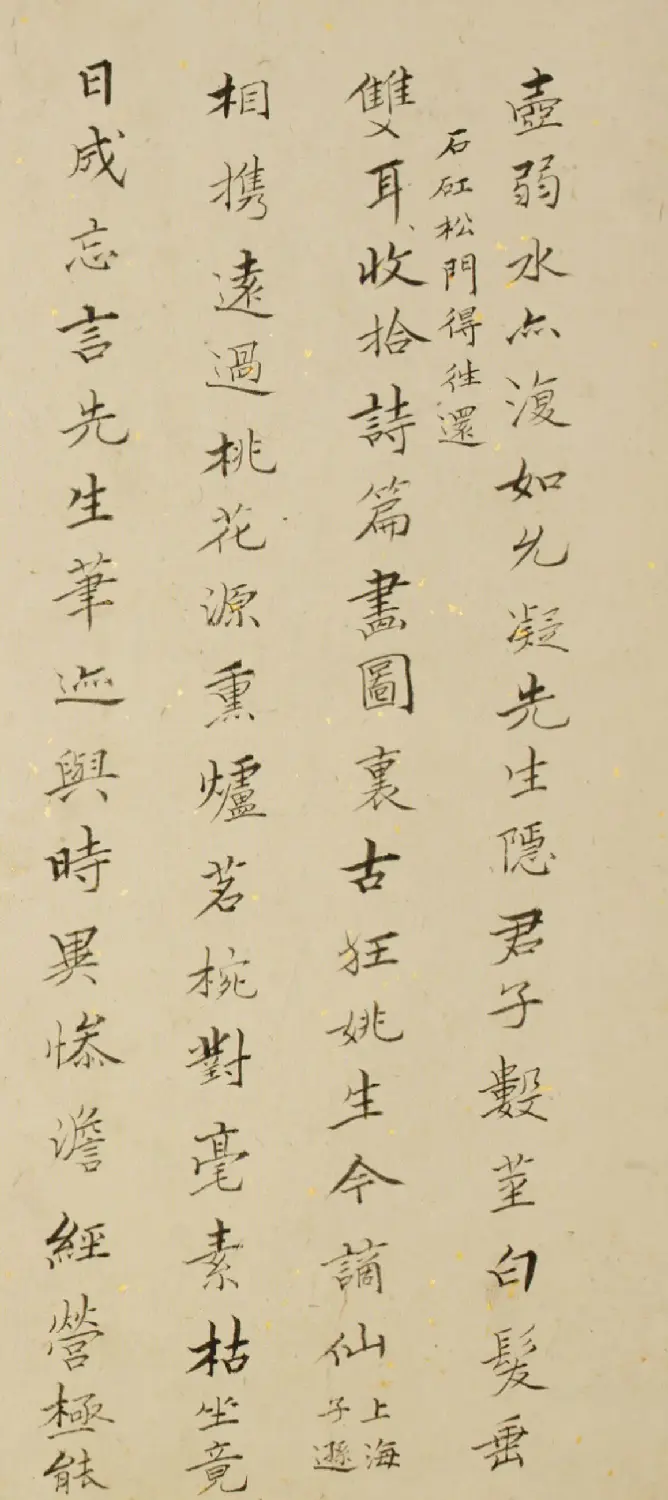 壺弱水亦復如允凝先生隱君子數莖白髮垂
石矼松門得徃還
雙耳收拾詩篇畫圖裏古狂姚生今謫仙
上海
子遜
相携遠過桃花源熏爐茗椀對毫素枯坐竟
日成忘言先生筆迹與時異慘澹經營極能